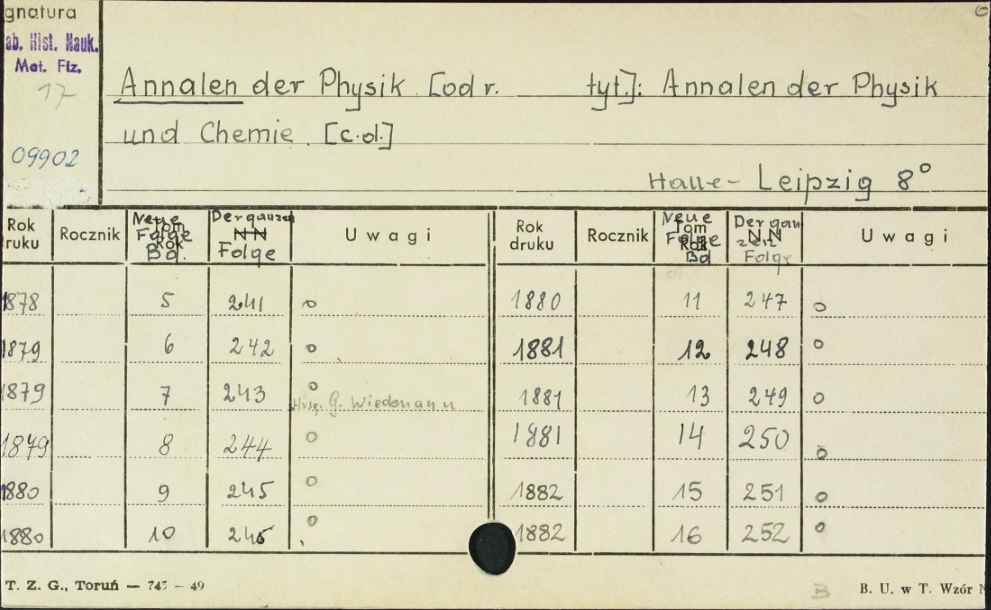 gnatura
ab. Hist. Nauk.
Mat. Fiz.
17
09902
Annalen der Physik [od r. tyt.]: Annalen der Physik
und Chemie [c.d.]
Halle - Leipzig 8°
Rok druku Rocznik Neue Folge Bd. Der ganzen Folge Uwagi Rok druku Rocznik Neue Folge Bd Der ganzen Folge Uwagi
1878 5 241 o 1880 11 247 o
1879 6 242 o 1881 12 248 o
1879 7 243 o 1881 13 249 o
G. Wiedemann
1879 8 244 o 1881 14 250 o
1880 9 245 o 1882 15 251 o
1880 10 246 o 1882 16 252 o
T. Z. G., Toruń — 745 — 49 B B. U. w T. Wzór N